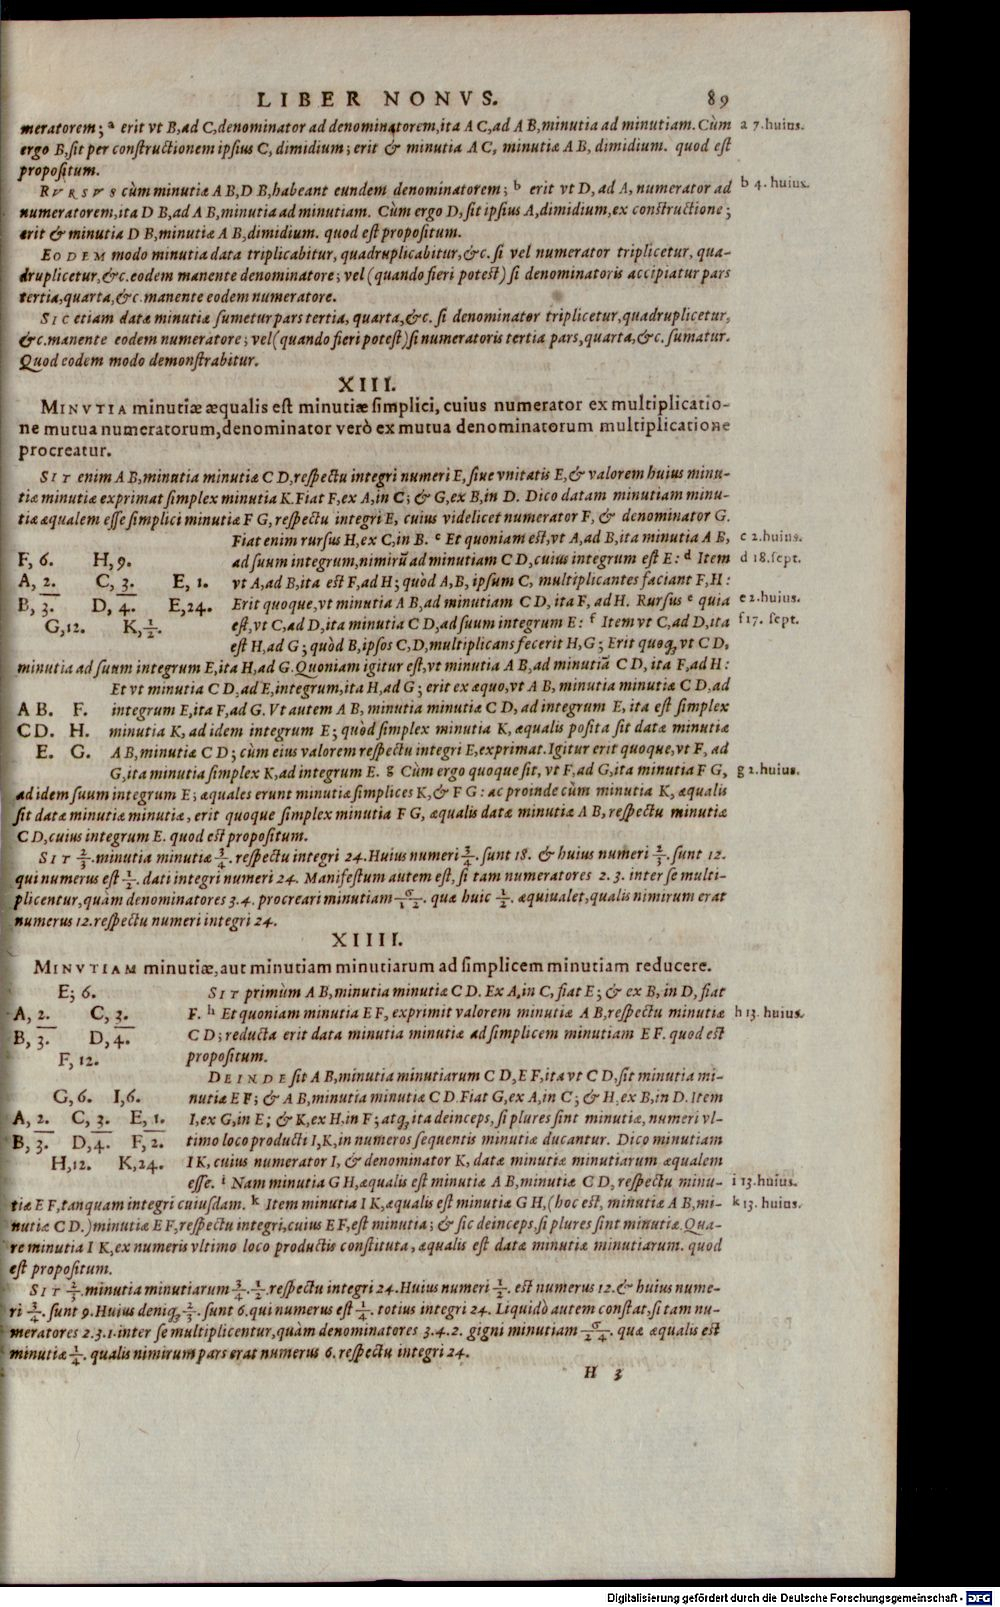 LIBER NONVS. 89
meratorem; a erit vt B, ad C, denominator ad denominatorem, ita A C, ad A B, minutia ad minutiam. Cùm a 7. huius.
ergo B, sit per constructionem ipsius C, dimidium; erit & minutia A C, minutiæ A B, dimidium. quod est
propositum.
RVRSVS cùm minutiæ A B, D B, habeant eundem denominatorem; b erit vt D, ad A, numerator ad b 4. huius.
numeratorem, ita D B, ad A B, minutia ad minutiam. Cùm ergo D, sit ipsius A, dimidium, ex constructione;
erit & minutia D B, minutiæ A B, dimidium. quod est propositum.
EODEM modo minutia data triplicabitur, quadruplicabitur, &c. si vel numerator triplicetur, qua-
druplicetur, &c. eodem manente denominatore; vel (quando fieri potest) si denominatoris accipiatur pars
tertia, quarta, &c. manente eodem numeratore.
SIC etiam datæ minutiæ sumetur pars tertia, quarta, &c. si denominator triplicetur, quadruplicetur,
&c. manente eodem numeratore; vel (quando fieri potest) si numeratoris tertia pars, quarta, &c. sumatur.
Quod eodem modo demonstrabitur.
XIII.
MINVTIA minutiæ æqualis est minutiæ simplici, cuius numerator ex multiplicatio-
ne mutua numeratorum, denominator verò ex mutua denominatorum multiplicatione
procreatur.
SIT enim A B, minutia minutiæ C D, respectu integri numeri E, siue vnitatis E, & valorem huius minu-
tiæ minutiæ exprimat simplex minutia K. Fiat F, ex A, in C; & G, ex B, in D. Dico datam minutiam minu-
tiæ æqualem esse simplici minutiæ F G, respectu integri E, cuius videlicet numerator F, & denominator G.
Fiat enim rursus H, ex C, in B. c Et quoniam est, vt A, ad B, ita minutia A B, c 2. huius.
F, 6. H, 9. ad suum integrum, nimirũ ad minutiam C D, cuius integrum est E: d Item d 18. sept.
A, 2. C, 3. E, 1. vt A, ad B, ita est F, ad H; quòd A, B, ipsum C, multiplicantes faciant F, H:
B, 3. D, 4. E, 24. Erit quoque, vt minutia A B, ad minutiam C D, ita F, ad H. Rursus e quia e 2. huius.
G, 12. K, 1/2. est, vt C, ad D, ita minutia C D, ad suum integrum E: f Item vt C, ad D, ita f 17. sept.
est H, ad G; quòd B, ipsos C, D, multiplicans fecerit H, G; Erit quoq;, vt C D,
minutia ad suum integrum E, ita H, ad G. Quoniam igitur est, vt minutia A B, ad minutiã C D, ita F, ad H:
Et vt minutia C D, ad E, integrum, ita H, ad G; erit ex æquo, vt A B, minutia minutiæ C D, ad
A B. F. integrum E, ita F, ad G. Vt autem A B, minutia minutiæ C D, ad integrum E, ita est simplex
C D. H. minutia K, ad idem integrum E; quòd simplex minutia K, æqualis posita sit datæ minutiæ
E. G. A B, minutiæ C D; cùm eius valorem respectu integri E, exprimat. Igitur erit quoque, vt F, ad
G, ita minutia simplex K, ad integrum E. g Cùm ergo quoque sit, vt F, ad G, ita minutia F G, g 2. huius.
ad idem suum integrum E; æquales erunt minutiæ simplices K, & F G: ac proinde cùm minutia K, æqualis
sit datæ minutiæ minutiæ, erit quoque simplex minutia F G, æqualis datæ minutiæ A B, respectu minutiæ
C D, cuius integrum E. quod est propositum.
SIT 2/3. minutia minutiæ 3/4. respectu integri 24. Huius numeri 3/4. sunt 18. & huius numeri 2/3. sunt 12.
qui numerus est 1/2. dati integri numeri 24. Manifestum autem est, si tam numeratores 2. 3. inter se multi-
plicentur, quàm denominatores 3. 4. procreari minutiam 6/12. quæ huic 1/2. æquiualet, qualis nimirum erat
numerus 12. respectu numeri integri 24.
XIIII.
MINVTIAM minutiæ, aut minutiam minutiarum ad simplicem minutiam reducere.
E; 6. SIT primùm A B, minutia minutiæ C D. Ex A, in C, fiat E; & ex B, in D, fiat
A, 2. C, 3. F. h Et quoniam minutia E F, exprimit valorem minutiæ A B, respectu minutiæ h 13. huius.
B, 3. D, 4. C D; reducta erit data minutia minutiæ ad simplicem minutiam E F. quod est
F, 12. propositum.
DEINDE sit A B, minutia minutiarum C D, E F, ita vt C D, sit minutia mi-
G, 6. I, 6. nutiæ E F; & A B, minutia minutiæ C D. Fiat G, ex A, in C; & H, ex B, in D. Item
A, 2. C, 3. E, 1. I, ex G, in E; & K, ex H, in F; atq; ita deinceps, si plures sint minutiæ, numeri vl-
B, 3. D, 4. F, 2. timo loco producti I, K, in numeros sequentis minutiæ ducantur. Dico minutiam
H, 12. K, 24. I K, cuius numerator I, & denominator K, datæ minutiæ minutiarum æqualem
esse. i Nam minutia G H, æqualis est minutiæ A B, minutiæ C D, respectu minu- i 13. huius.
tiæ E F, tanquam integri cuiusdam. k Item minutia I K, æqualis est minutiæ G H, (hoc est, minutiæ A B, mi- k 13. huius.
nutiæ C D.) minutiæ E F, respectu integri, cuius E F, est minutia; & sic deinceps, si plures sint minutiæ. Qua-
re minutia I K, ex numeris vltimo loco productis constituta, æqualis est datæ minutiæ minutiarum. quod
est propositum.
SIT 2/3. minutia minutiarum 3/4. 1/2. respectu integri 24. Huius numeri 1/2. est numerus 12. & huius nume-
ri 3/4. sunt 9. Huius deniq; 2/3. sunt 6. qui numerus est 1/4. totius integri 24. Liquidò autem constat, si tam nu-
meratores 2. 3. 1. inter se multiplicentur, quàm denominatores 3. 4. 2. gigni minutiam 6/24. quæ æqualis est
minutiæ 1/4. qualis nimirum pars erat numerus 6. respectu integri 24.
H 3
Digitalisierung gefördert durch die Deutsche Forschungsgemeinschaft - DFG